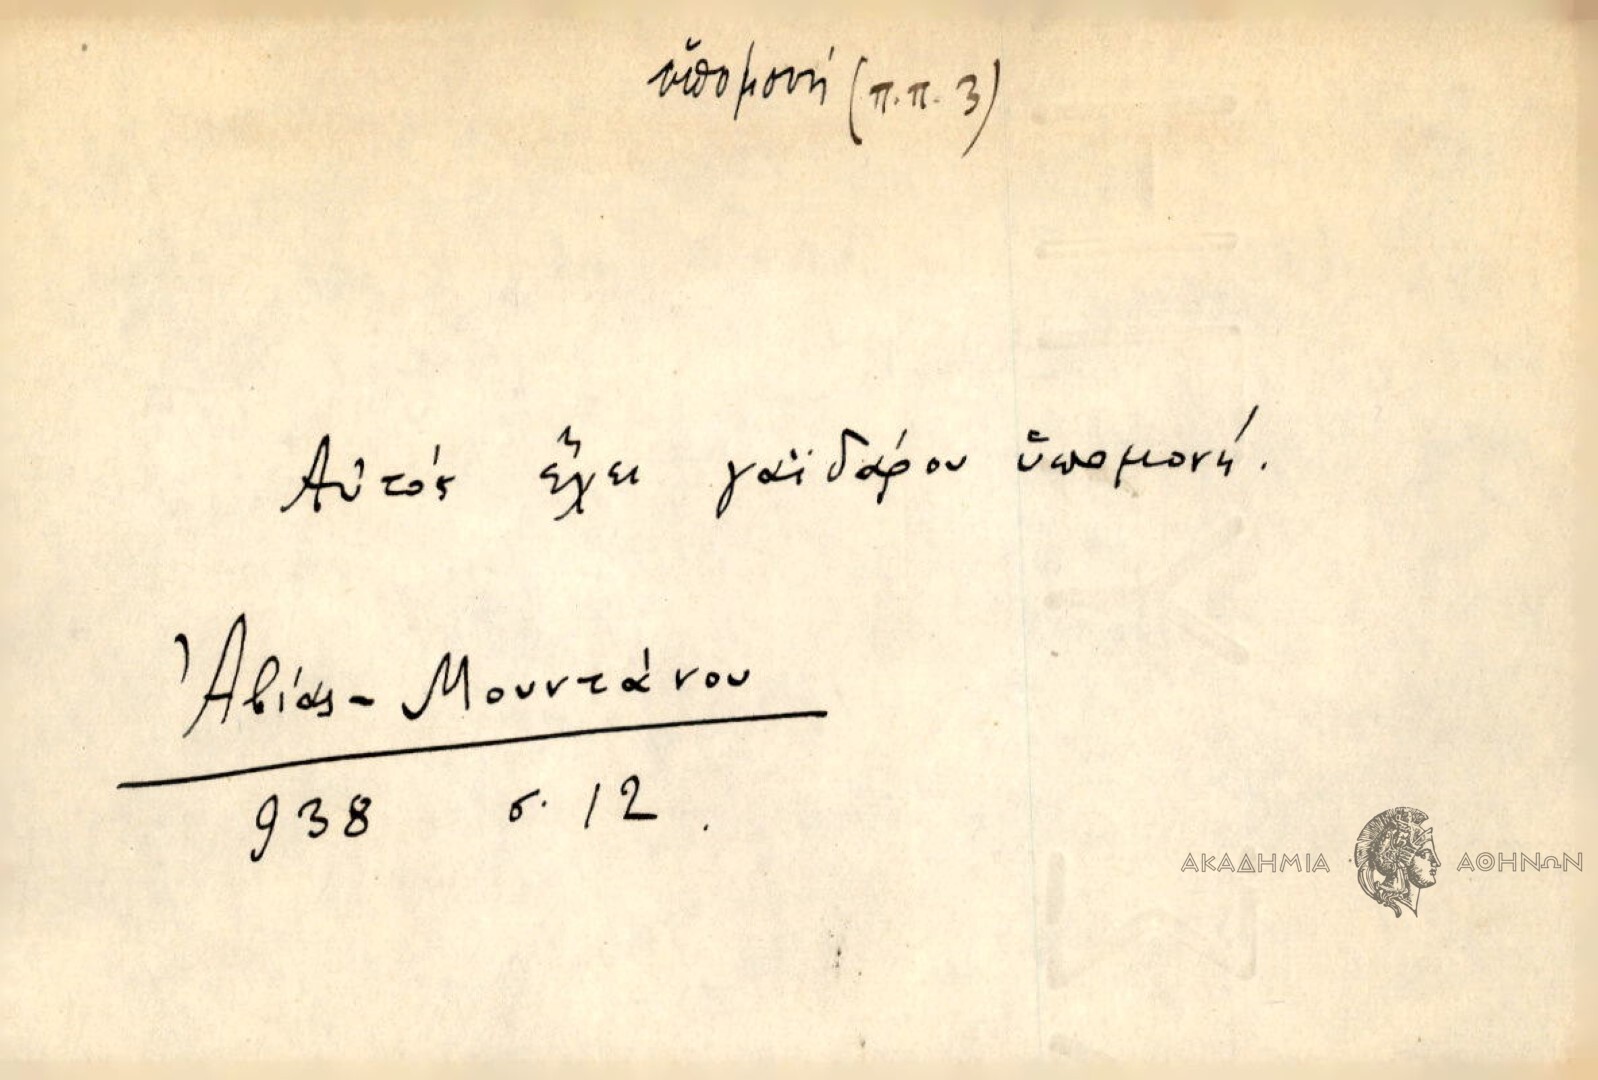 ὑπομονή (π.π. 3)
Αὐτός ἔχει γαϊδάρου ὑπομονή.
Ἀβίας - Μουντάνου
938 σ. 12.
ΑΚΑΔΗΜΙΑ ΑΘΗΝΩΝ